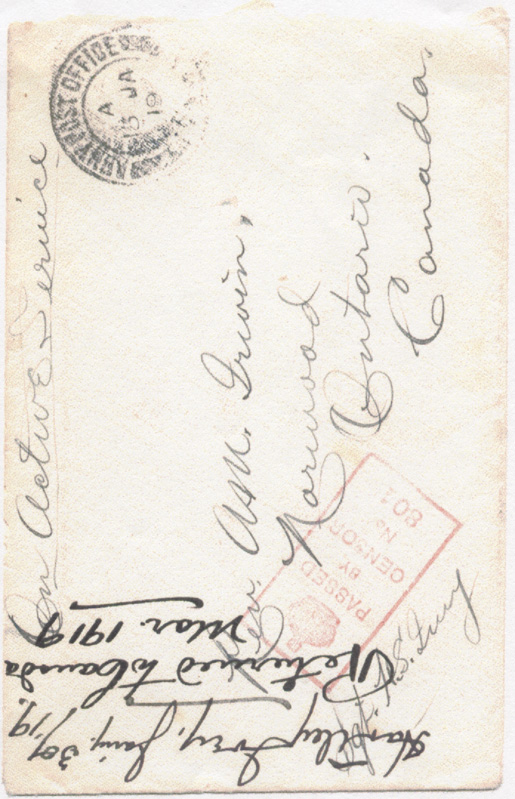 On Active Service
ARMY POST OFFICE
A
13 JA
19
Rev. A.M. Irwin,
Norwood
Ontario.
Canada.
PASSED
BY
CENSOR
No
801
Hartley Ivey, Jany.
Returned to Canada
Mar. 1919